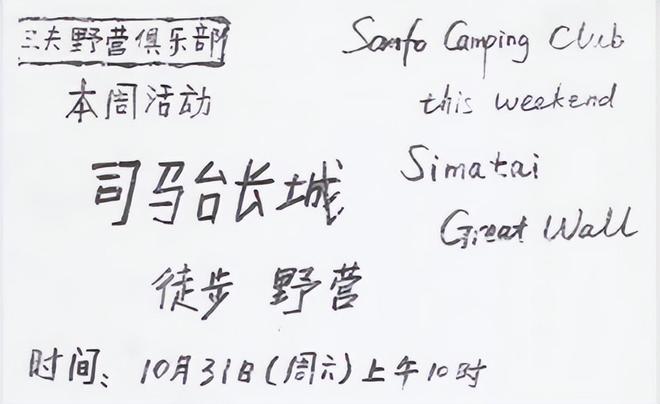 三夫野营俱乐部
Sanfo Camping Club
本周活动
this weekend
司马台长城
Simatai
Great Wall
徒步 野营
时间：10月31日(周六)上午10时